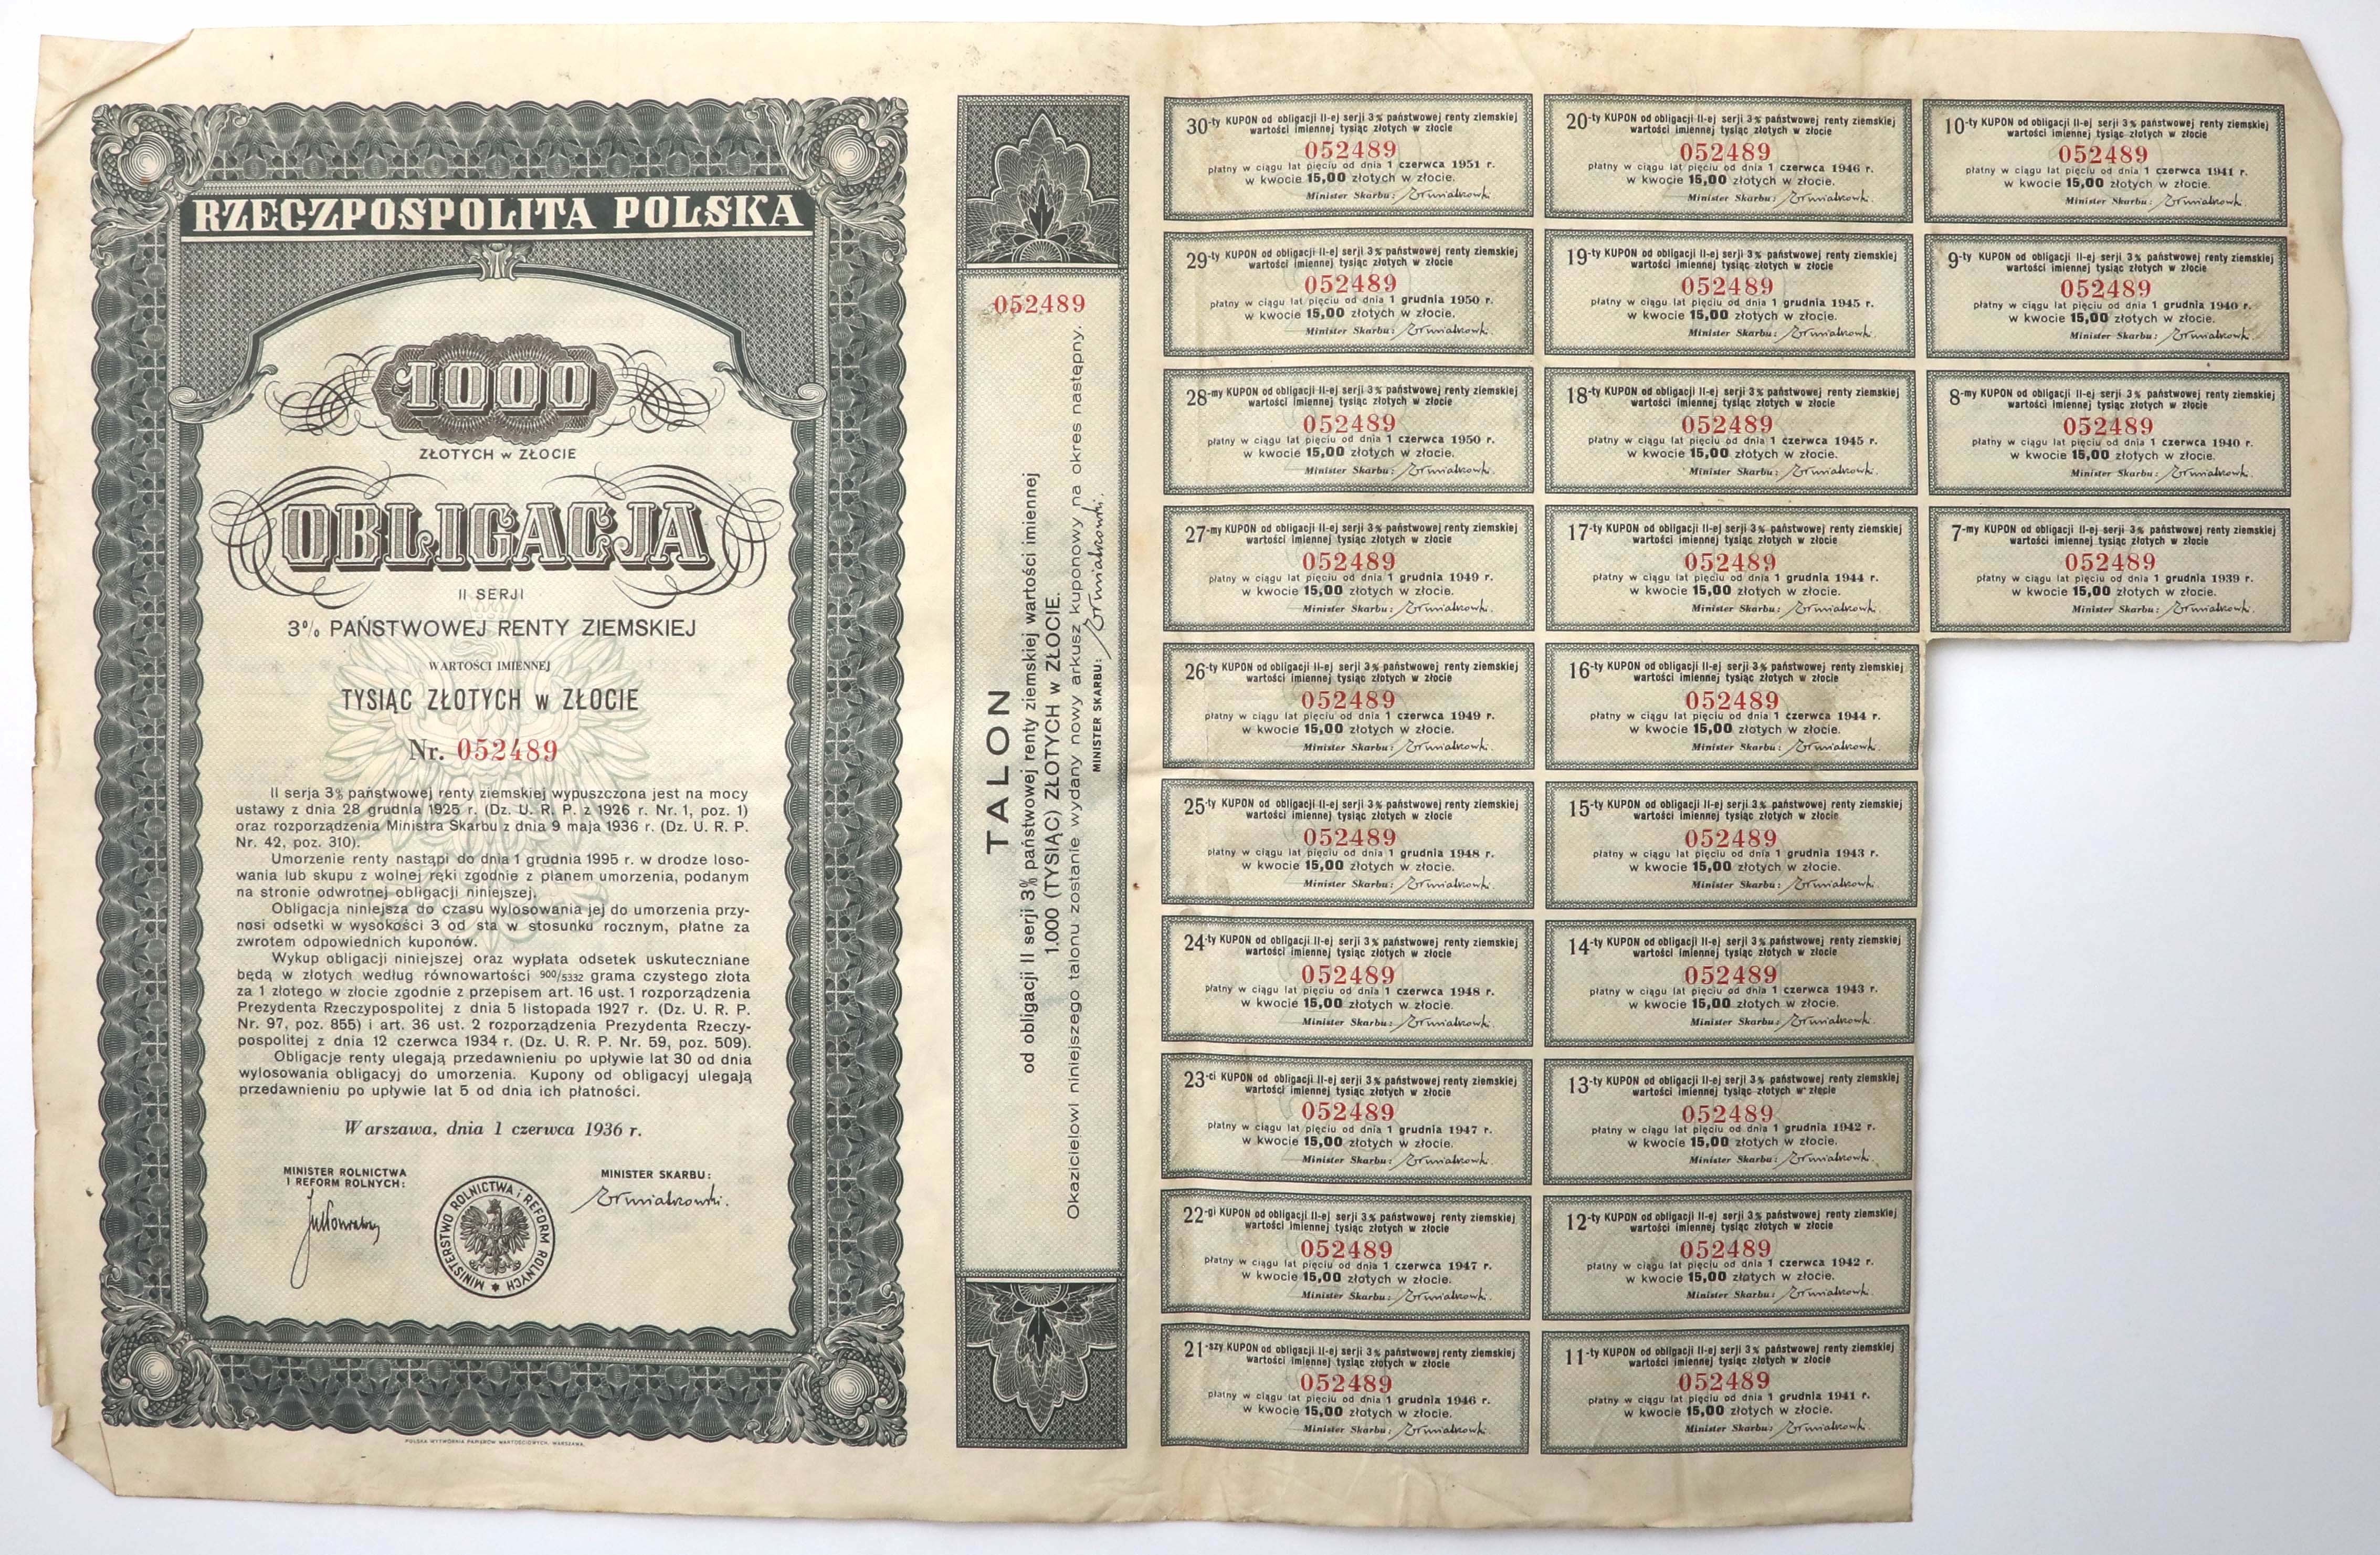 RZECZPOSPOLITA POLSKA
1000
ZŁOTYCH w ZŁOCIE
OBLIGACJA
II SERJI
3% PAŃSTWOWEJ RENTY ZIEMSKIEJ
WARTOŚCI IMIENNEJ
TYSIĄC ZŁOTYCH w ZŁOCIE
Nr. 052489
II serja 3% państwowej renty ziemskiej wypuszczona jest na mocy
ustawy z dnia 28 grudnia 1925 r. (Dz. U. R. P. z 1926 r. Nr. 1, poz. 1)
oraz rozporządzenia Ministra Skarbu z dnia 9 maja 1936 r. (Dz. U. R. P.
Nr. 42, poz. 310).
Umorzenie renty nastąpi do dnia 1 grudnia 1995 r. w drodze loso-
wania lub skupu z wolnej ręki zgodnie z planem umorzenia, podanym
na stronie odwrotnej obligacji niniejszej.
Obligacja niniejsza do czasu wylosowania jej do umorzenia przy-
nosi odsetki w wysokości 3 od sta w stosunku rocznym, płatne za
zwrotem odpowiednich kuponów.
Wykup obligacji niniejszej oraz wypłata odsetek uskuteczniane
będą w złotych według równowartości 900/5332 grama czystego złota
za 1 złotego w złocie zgodnie z przepisem art. 16 ust. 1 rozporządzenia
Prezydenta Rzeczypospolitej z dnia 5 listopada 1927 r. (Dz. U. R. P.
Nr. 97, poz. 855) i art. 36 ust. 2 rozporządzenia Prezydenta Rzeczy-
pospolitej z dnia 12 czerwca 1934 r. (Dz. U. R. P. Nr. 59, poz. 509).
Obligacje renty ulegają przedawnieniu po upływie lat 30 od dnia
wylosowania obligacyj do umorzenia. Kupony od obligacyj ulegają
przedawnieniu po upływie lat 5 od dnia ich płatności.
Warszawa, dnia 1 czerwca 1936 r.
MINISTER ROLNICTWA
I REFORM ROLNYCH:
MINISTER SKARBU:
MINISTERSTWO ROLNICTWA i REFORM ROLNYCH
POLSKA WYTWÓRNIA PAPIERÓW WARTOŚCIOWYCH, WARSZAWA.
052489
TALON
od obligacji II serji 3% państwowej renty ziemskiej wartości imiennej
1.000 (TYSIĄC) ZŁOTYCH w ZŁOCIE.
Okazicielowi niniejszego talonu zostanie wydany nowy arkusz kuponowy na okres następny.
MINISTER SKARBU:
30-ty KUPON od obligacji II-ej serji 3% państwowej renty ziemskiej
wartości imiennej tysiąc złotych w złocie
052489
płatny w ciągu lat pięciu od dnia 1 czerwca 1951 r.
w kwocie 15,00 złotych w złocie.
Minister Skarbu:
29-ty KUPON od obligacji II-ej serji 3% państwowej renty ziemskiej
wartości imiennej tysiąc złotych w złocie
052489
płatny w ciągu lat pięciu od dnia 1 grudnia 1950 r.
w kwocie 15,00 złotych w złocie.
Minister Skarbu:
28-my KUPON od obligacji II-ej serji 3% państwowej renty ziemskiej
wartości imiennej tysiąc złotych w złocie
052489
płatny w ciągu lat pięciu od dnia 1 czerwca 1950 r.
w kwocie 15,00 złotych w złocie.
Minister Skarbu:
27-my KUPON od obligacji II-ej serji 3% państwowej renty ziemskiej
wartości imiennej tysiąc złotych w złocie
052489
płatny w ciągu lat pięciu od dnia 1 grudnia 1949 r.
w kwocie 15,00 złotych w złocie.
Minister Skarbu:
26-ty KUPON od obligacji II-ej serji 3% państwowej renty ziemskiej
wartości imiennej tysiąc złotych w złocie
052489
płatny w ciągu lat pięciu od dnia 1 czerwca 1949 r.
w kwocie 15,00 złotych w złocie.
Minister Skarbu:
25-ty KUPON od obligacji II-ej serji 3% państwowej renty ziemskiej
wartości imiennej tysiąc złotych w złocie
052489
płatny w ciągu lat pięciu od dnia 1 grudnia 1948 r.
w kwocie 15,00 złotych w złocie.
Minister Skarbu:
24-ty KUPON od obligacji II-ej serji 3% państwowej renty ziemskiej
wartości imiennej tysiąc złotych w złocie
052489
płatny w ciągu lat pięciu od dnia 1 czerwca 1948 r.
w kwocie 15,00 złotych w złocie.
Minister Skarbu:
23-ci KUPON od obligacji II-ej serji 3% państwowej renty ziemskiej
wartości imiennej tysiąc złotych w złocie
052489
płatny w ciągu lat pięciu od dnia 1 grudnia 1947 r.
w kwocie 15,00 złotych w złocie.
Minister Skarbu:
22-gi KUPON od obligacji II-ej serji 3% państwowej renty ziemskiej
wartości imiennej tysiąc złotych w złocie
052489
płatny w ciągu lat pięciu od dnia 1 czerwca 1947 r.
w kwocie 15,00 złotych w złocie.
Minister Skarbu:
21-szy KUPON od obligacji II-ej serji 3% państwowej renty ziemskiej
wartości imiennej tysiąc złotych w złocie
052489
płatny w ciągu lat pięciu od dnia 1 grudnia 1946 r.
w kwocie 15,00 złotych w złocie.
Minister Skarbu:
20-ty KUPON od obligacji II-ej serji 3% państwowej renty ziemskiej
wartości imiennej tysiąc złotych w złocie
052489
płatny w ciągu lat pięciu od dnia 1 czerwca 1946 r.
w kwocie 15,00 złotych w złocie.
Minister Skarbu:
19-ty KUPON od obligacji II-ej serji 3% państwowej renty ziemskiej
wartości imiennej tysiąc złotych w złocie
052489
płatny w ciągu lat pięciu od dnia 1 grudnia 1945 r.
w kwocie 15,00 złotych w złocie.
Minister Skarbu:
18-ty KUPON od obligacji II-ej serji 3% państwowej renty ziemskiej
wartości imiennej tysiąc złotych w złocie
052489
płatny w ciągu lat pięciu od dnia 1 czerwca 1945 r.
w kwocie 15,00 złotych w złocie.
Minister Skarbu:
17-ty KUPON od obligacji II-ej serji 3% państwowej renty ziemskiej
wartości imiennej tysiąc złotych w złocie
052489
płatny w ciągu lat pięciu od dnia 1 grudnia 1944 r.
w kwocie 15,00 złotych w złocie.
Minister Skarbu:
16-ty KUPON od obligacji II-ej serji 3% państwowej renty ziemskiej
wartości imiennej tysiąc złotych w złocie
052489
płatny w ciągu lat pięciu od dnia 1 czerwca 1944 r.
w kwocie 15,00 złotych w złocie.
Minister Skarbu:
15-ty KUPON od obligacji II-ej serji 3% państwowej renty ziemskiej
wartości imiennej tysiąc złotych w złocie
052489
płatny w ciągu lat pięciu od dnia 1 grudnia 1943 r.
w kwocie 15,00 złotych w złocie.
Minister Skarbu:
14-ty KUPON od obligacji II-ej serji 3% państwowej renty ziemskiej
wartości imiennej tysiąc złotych w złocie
052489
płatny w ciągu lat pięciu od dnia 1 czerwca 1943 r.
w kwocie 15,00 złotych w złocie.
Minister Skarbu:
13-ty KUPON od obligacji II-ej serji 3% państwowej renty ziemskiej
wartości imiennej tysiąc złotych w złocie
052489
płatny w ciągu lat pięciu od dnia 1 grudnia 1942 r.
w kwocie 15,00 złotych w złocie.
Minister Skarbu:
12-ty KUPON od obligacji II-ej serji 3% państwowej renty ziemskiej
wartości imiennej tysiąc złotych w złocie
052489
płatny w ciągu lat pięciu od dnia 1 czerwca 1942 r.
w kwocie 15,00 złotych w złocie.
Minister Skarbu:
11-ty KUPON od obligacji II-ej serji 3% państwowej renty ziemskiej
wartości imiennej tysiąc złotych w złocie
052489
płatny w ciągu lat pięciu od dnia 1 grudnia 1941 r.
w kwocie 15,00 złotych w złocie.
Minister Skarbu:
10-ty KUPON od obligacji II-ej serji 3% państwowej renty ziemskiej
wartości imiennej tysiąc złotych w złocie
052489
płatny w ciągu lat pięciu od dnia 1 czerwca 1941 r.
w kwocie 15,00 złotych w złocie.
Minister Skarbu:
9-ty KUPON od obligacji II-ej serji 3% państwowej renty ziemskiej
wartości imiennej tysiąc złotych w złocie
052489
płatny w ciągu lat pięciu od dnia 1 grudnia 1940 r.
w kwocie 15,00 złotych w złocie.
Minister Skarbu:
8-my KUPON od obligacji II-ej serji 3% państwowej renty ziemskiej
wartości imiennej tysiąc złotych w złocie
052489
płatny w ciągu lat pięciu od dnia 1 czerwca 1940 r.
w kwocie 15,00 złotych w złocie.
Minister Skarbu:
7-my KUPON od obligacji II-ej serji 3% państwowej renty ziemskiej
wartości imiennej tysiąc złotych w złocie
052489
płatny w ciągu lat pięciu od dnia 1 grudnia 1939 r.
w kwocie 15,00 złotych w złocie.
Minister Skarbu: